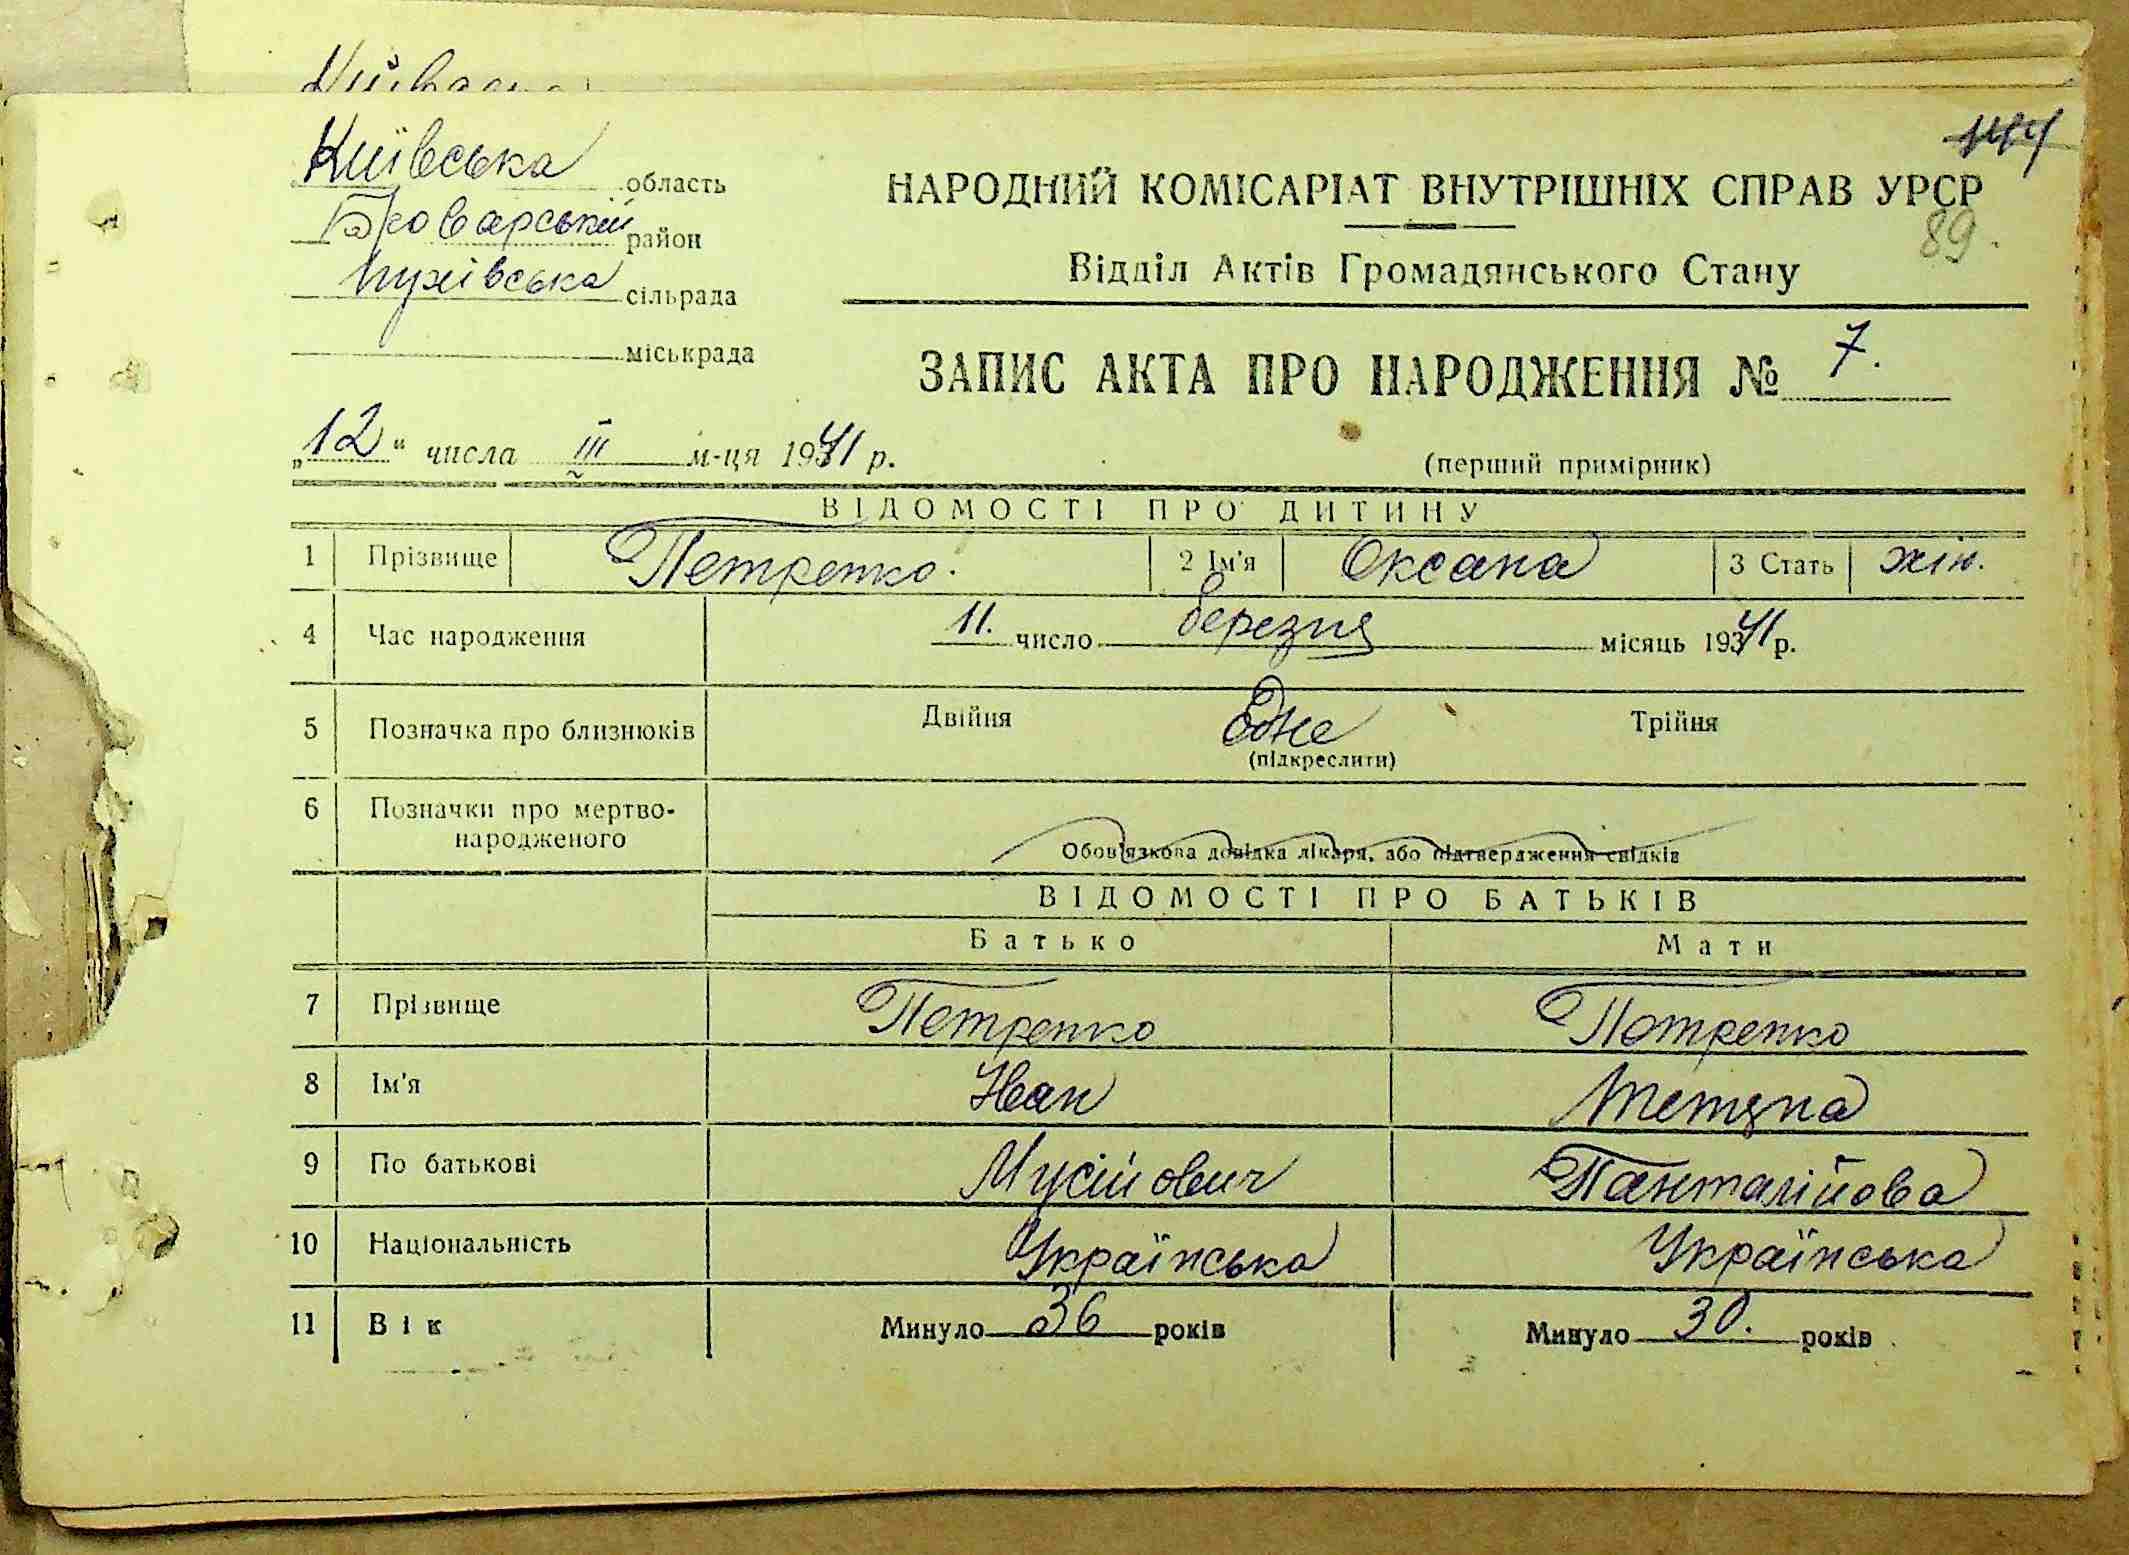 Київська область
Броварський район
Пухівська сільрада
міськрада
89.
НАРОДНИЙ КОМІСАРІАТ ВНУТРІШНІХ СПРАВ УРСР
Відділ Актів Громадянського Стану
ЗАПИС АКТА ПРО НАРОДЖЕННЯ № 7.
„12“ числа III м-ця 1941 р.
(перший примірник)
ВІДОМОСТІ ПРО ДИТИНУ
1 Прізвище Петренко. 2 Ім'я Оксана 3 Стать жін.
4 Час народження 11. число березня місяць 1941 р.
5 Позначка про близнюків Двійня Одне Трійня
(підкреслити)
6 Позначки про мертво-
народженого
Обов'язкова довідка лікаря, або підтвердження свідків
ВІДОМОСТІ ПРО БАТЬКІВ
Батько Мати
7 Прізвище Петренко Петренко
8 Ім'я Іван Тетяна
9 По батькові Мусійович Панталійова
10 Національність Українська Українська
11 Вік Минуло 36 років Минуло 30. років